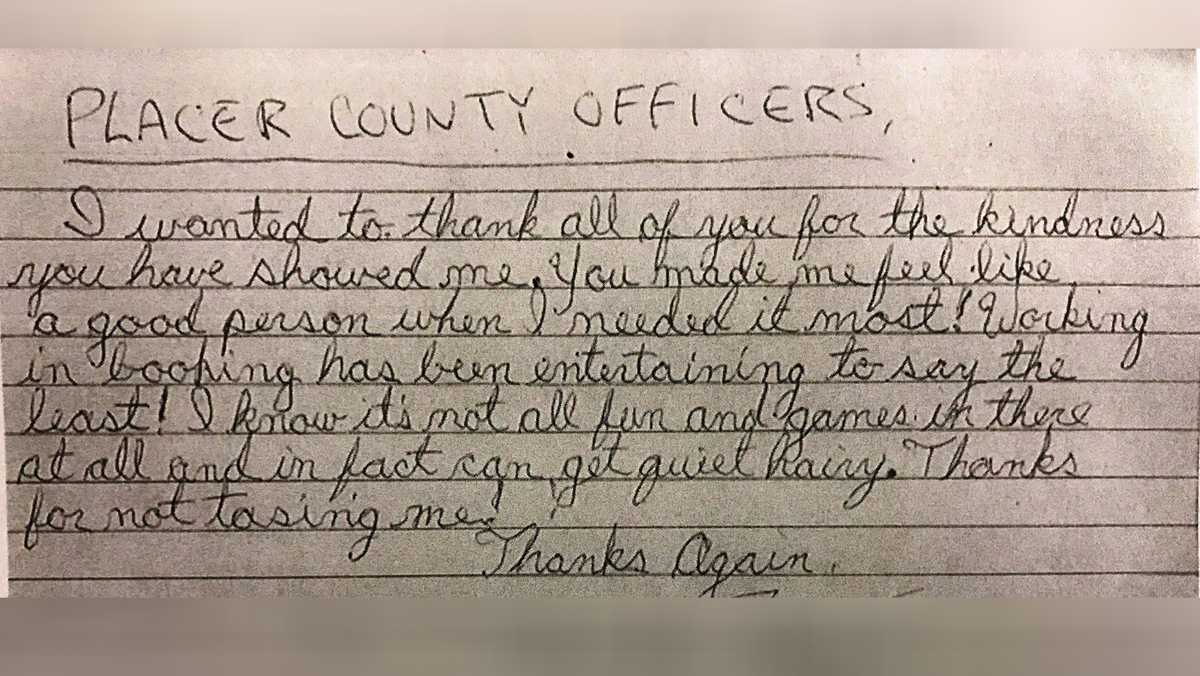 PLACER COUNTY OFFICERS,
I wanted to thank all of you for the kindness
you have showed me. You made me feel like
a good person when I needed it most! Working
in booking has been entertaining to say the
least! I know it's not all fun and games in there
at all and in fact can get quiet hairy. Thanks
for not tasing me!
Thanks Again.